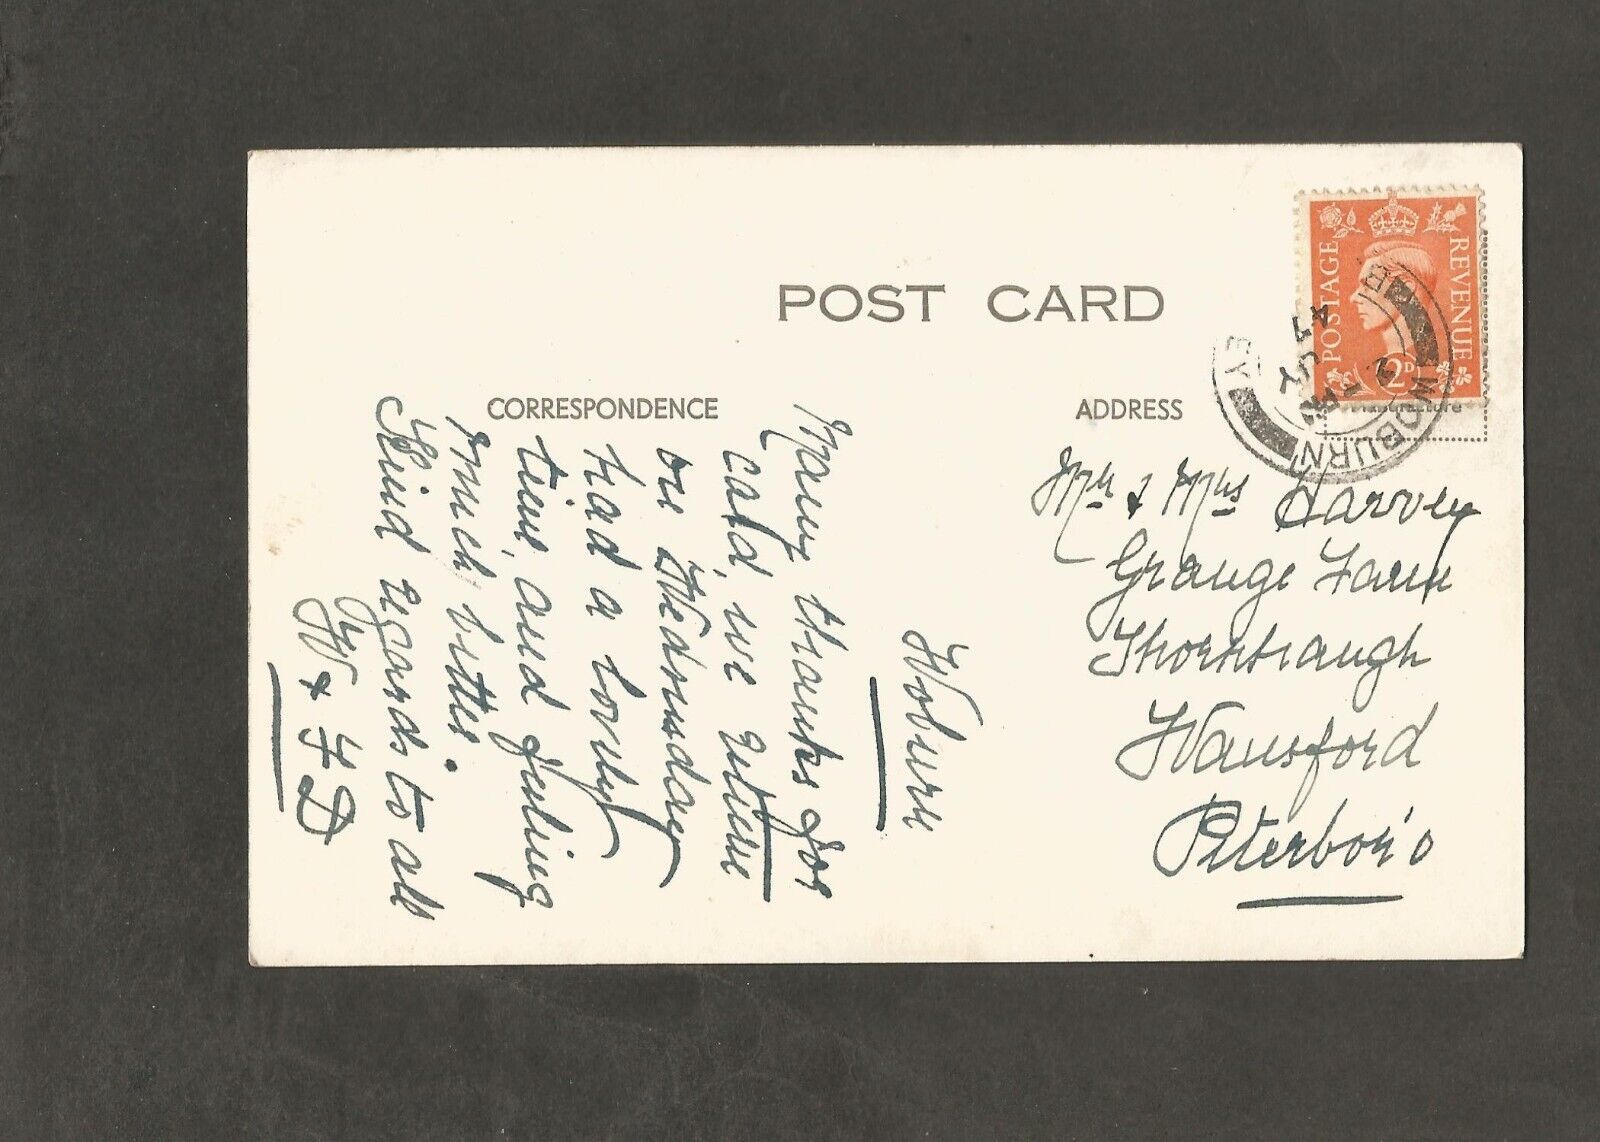 POST CARD
CORRESPONDENCE
ADDRESS
POSTAGE
REVENUE
2D
Manufacture
WOBURN
EY
JY
47
Woburn
Many thanks for
card, we return
on Wednesday
had a lovely
time, and feeling
much better.
Kind regards to all
W & F D
Mr & Mrs Harvey
Grange Farm
Thornhaugh
Wansford
Peterboro'